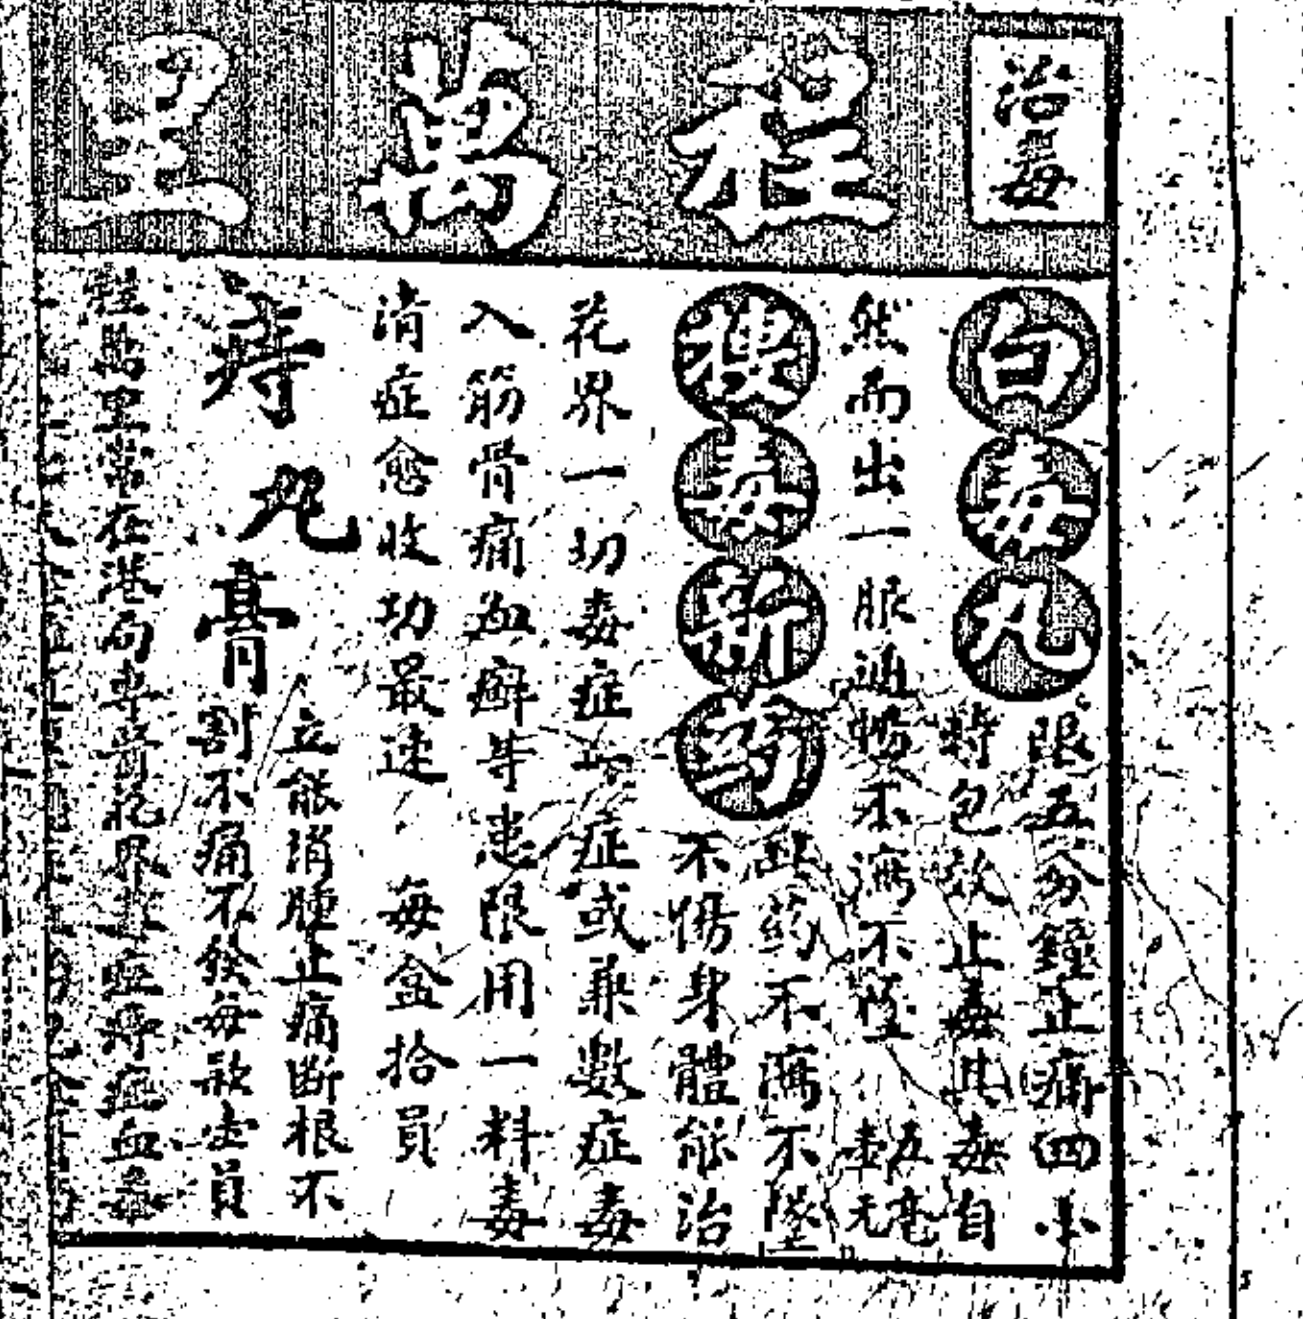 治毒
程萬里
白毒丸
限五分鐘止痛四小
時包效止毒其毒自
然而出一服通暢不瀉不墜
五毫
搜毒新药
此药不瀉不墜
不傷身體能治
花界一切毒症 症或兼數症毒
入筋骨痛血癬等患限用一料毒
清症愈收功最速 每盒拾員
痔丸膏
立能消腫止痛斷根不
割不痛不發每歀 員
程萬里 在港 專 花界毒症痔疵血毒